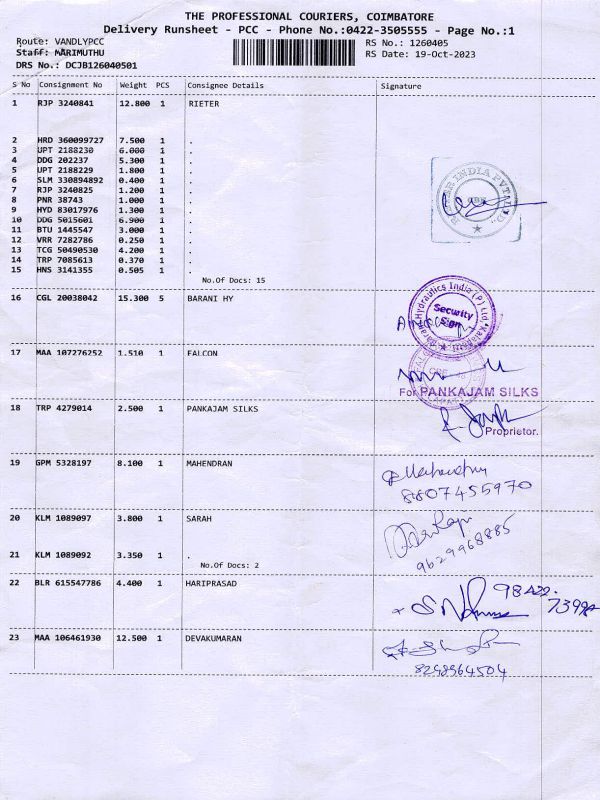 THE PROFESSIONAL COURIERS, COIMBATORE
Delivery Runsheet - PCC - Phone No.:0422-3505555 - Page No.:1
Route: VANDLYPCC RS No.: 1260405
Staff: MARIMUTHU RS Date: 19-Oct-2023
DRS No.: DCJB126040501
S No Consignment No Weight PCS Consignee Details Signature
1 RJP 3240841 12.800 1 RIETER
2 HRD 360099727 7.500 1 .
3 UPT 2188230 6.000 1 .
4 DDG 202237 5.300 1 .
5 UPT 2188229 1.800 1 .
6 SLM 330894892 0.400 1 .
7 RJP 3240825 1.200 1 .
8 PNR 38743 1.000 1 .
9 HYD 83017976 1.300 1 .
10 DDG 5015601 6.900 1 .
11 BTU 1445547 3.000 1 .
12 VRR 7282786 0.250 1 .
13 TCG 50490530 4.200 1 .
14 TRP 7085613 0.370 1 .
15 HNS 3141355 0.505 1 .
No.Of Docs: 15
INDIA PVT
16 CGL 20038042 15.300 5 BARANI HY
Barani Hydraulics India (P) Ltd
Security
Sign
17 MAA 107276252 1.510 1 FALCON
For PANKAJAM SILKS
18 TRP 4279014 2.500 1 PANKAJAM SILKS
Proprietor.
19 GPM 5328197 8.100 1 MAHENDRAN
8807455970
20 KLM 1089097 3.800 1 SARAH
9629968885
21 KLM 1089092 3.350 1 .
No.Of Docs: 2
22 BLR 615547786 4.400 1 HARIPRASAD
98422
23 MAA 106461930 12.500 1 DEVAKUMARAN
8298964504